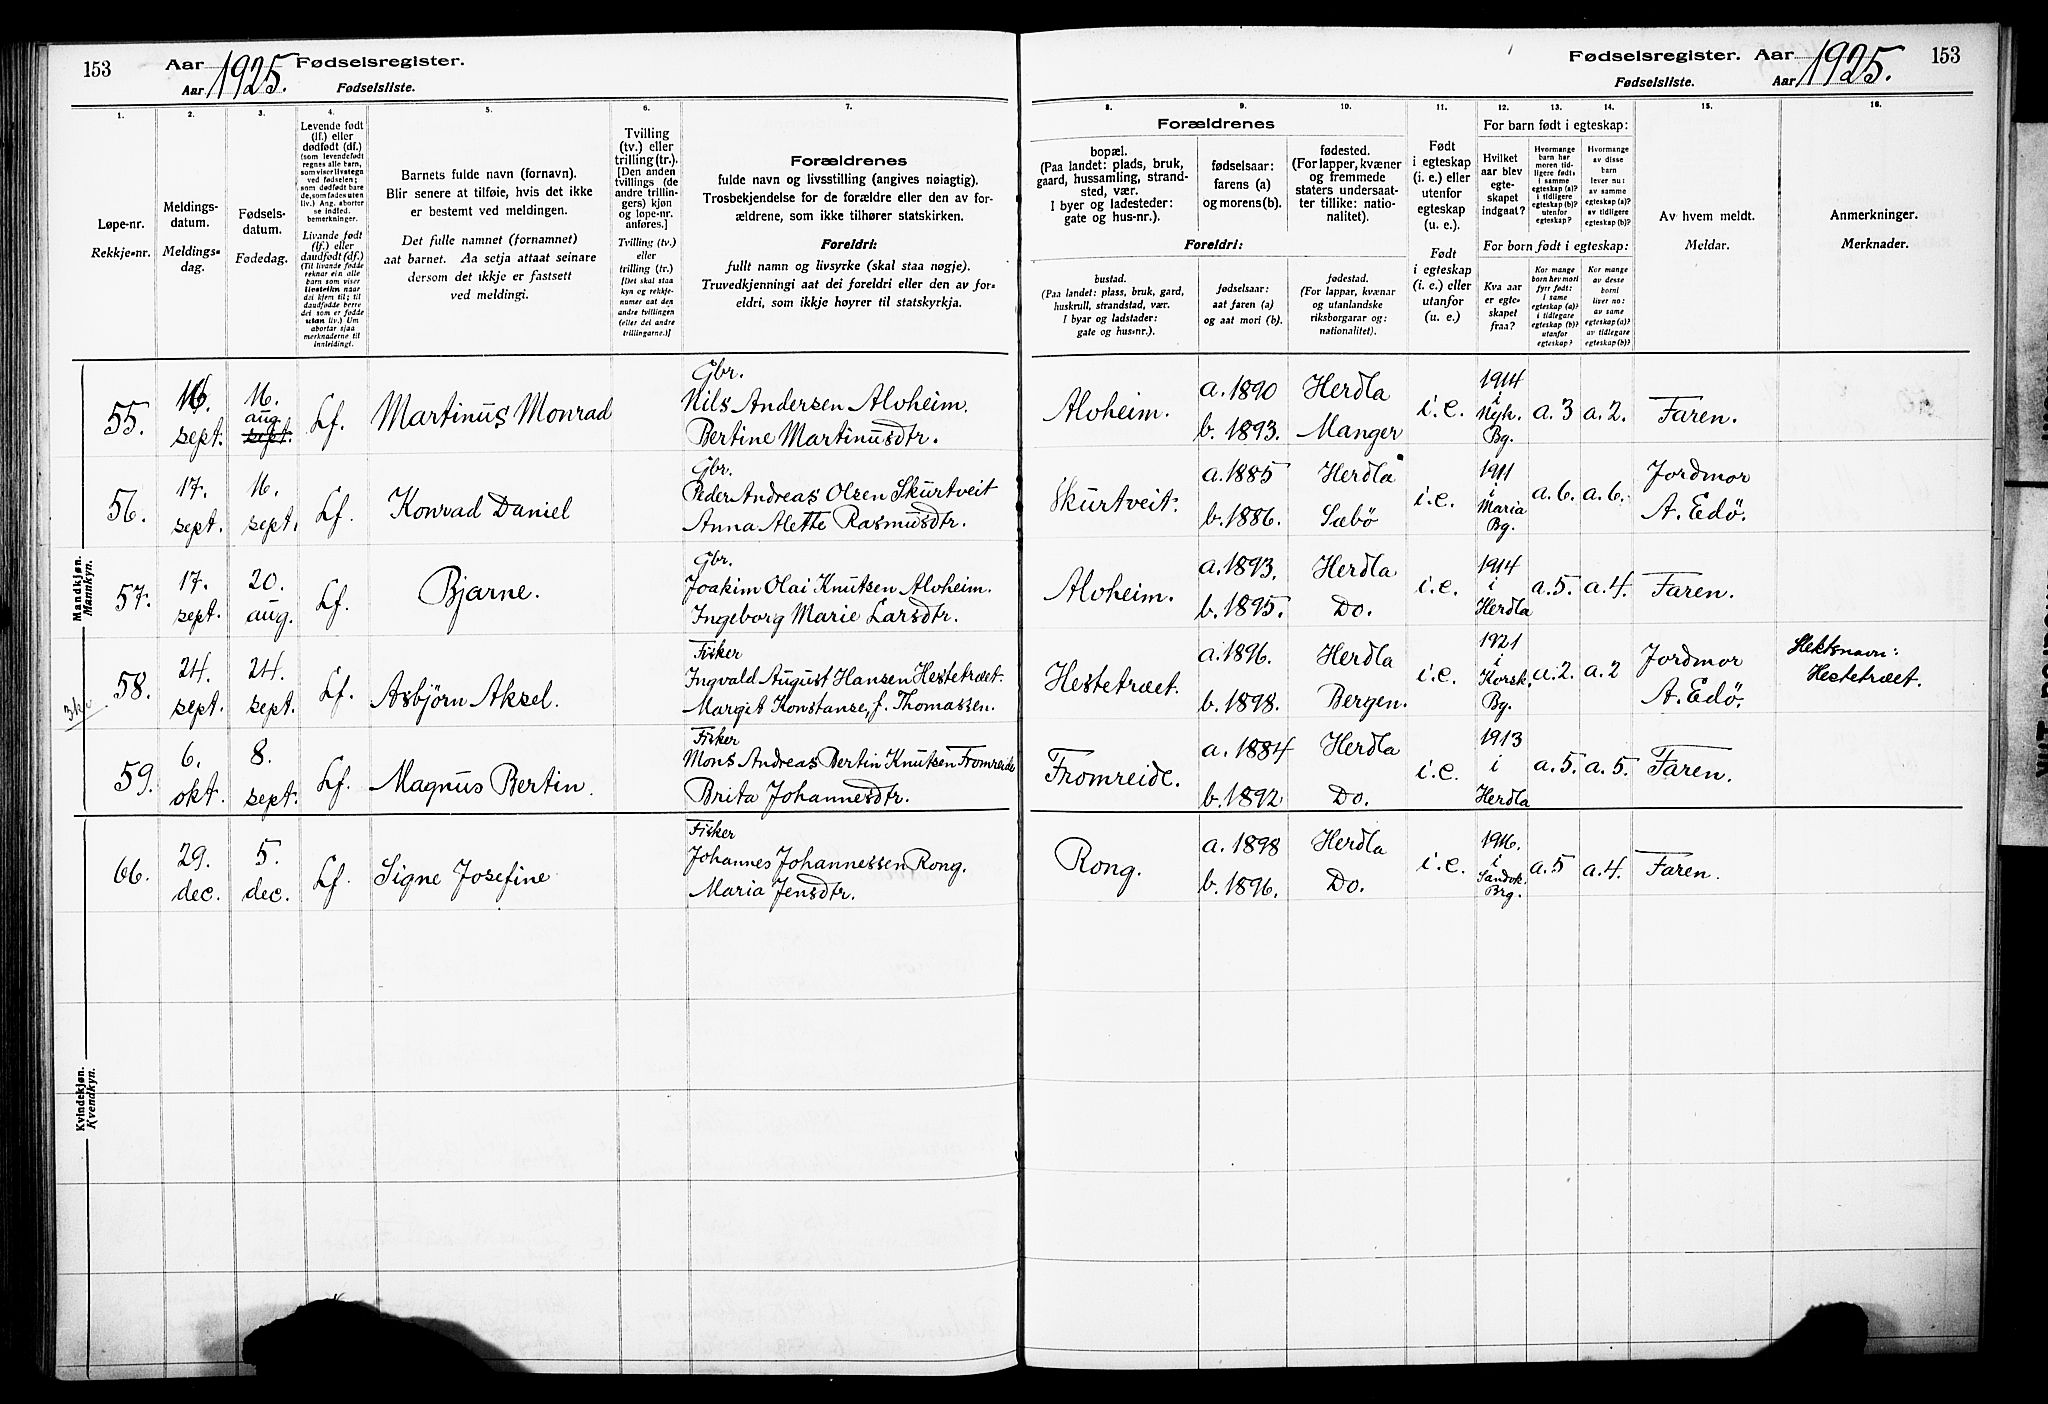 153 Aar 1925. Fødselsregister.
Aar Fødselsliste.
Fødselsregister. Aar 1925. 153
Fødselsliste. Aar
1. 2. 3. 4. 5. 6. 7.
Løpe-nr.
Rekkje-nr.
Meldings-
datum.
Meldings-
dag.
Fødsels-
datum.
Fødedag.
Levende født
(lf.) eller
dødfødt (df.)
(som levendefødt
regnes alle barn,
som viser livstegn
ved fødselen;
som dødfødt bare
de, som fødes uten
liv.) Ang. aborter
se indled.
bemerkninger.
Livande født
(lf.) eller
daudfødt (df.)
(Til livande fødde
reknar ein alle
barn som viser
livsteikn naar
dei kjem til; til
daudfødde berre
dei som er fødde
utan liv.) Um
abortar sjaa
merknaderne til
innleidingi.
Barnets fulde navn (fornavn).
Blir senere at tilføie, hvis det ikke
er bestemt ved meldingen.
Det fulle namnet (fornamnet)
aat barnet. Aa setja attaat seinare
dersom det ikkje er fastsett
ved meldingi.
Tvilling
(tv.) eller
trilling (tr.).
[Den anden
tvillings (de
andre trillin-
gers) kjøn
og løpe-nr.
anføres.]
Tvilling (tv.)
eller
trilling (tr.)
[Det skal staa
kyn og rekkje-
numer aat den
andre tvillingen
(eller dei andre
trillingarne.)]
Forældrenes
fulde navn og livsstilling (angives nøiagtig).
Trosbekjendelse for de forældre eller den av for-
ældrene, som ikke tilhører statskirken.
Foreldri:
fullt namn og livsyrke (skal staa nøgje).
Truvedkjenningi aat dei foreldri eller den av for-
eldri, som ikkje høyrer til statskyrkja.
8. 9. 10. 11. 12. 13. 14. 15. 16.
Forældrenes
bopæl.
(Paa landet: plads, bruk,
gaard, hussamling, strand-
sted, vær.
I byer og ladesteder:
gate og hus-nr.).
fødselsaar:
farens (a)
og morens (b).
fødested.
(For lapper, kvæner
og fremmede
staters undersaat-
ter tillike: natio-
nalitet).
Foreldri:
bustad.
(Paa landet: plass, bruk, gard,
huskrull, strandstad, vær.
I byar og ladstader:
gate og hus-nr.).
fødselsaar:
aat faren (a)
og aat mori (b).
fødestad.
(For lappar, kvænar
og utanlandske
riksborgarar og:
nationalitet).
Født
i egteskap
(i. e.) eller
utenfor
egteskap
(u. e.).
Født
i egteskap
(i. e.) eller
utanfor
(u. e.)
For barn født i egteskap:
Hvilket
aar blev
egte-
skapet
indgaat?
Hvormange
barn har
moren tid-
ligere født:
i samme
egteskap (a)?
i tidligere
egteskap (b)?
utenfor
egteskap?
Hvormange
av disse
barn
lever nu:
av samme
egteskap (a)?
av tidligere
egteskap (b)?
For born født i egteskap:
Kva aar
er egte-
skapet
fraa?
Kor mange
born hev mori
fyrr født:
i same
egteskap (a)?
i tidlegare
egteskap (b)?
utanfor
egteskap?
Kor mange
av desse
borni
liver no:
av same
egteskap (a)?
av tidlegare
egteskap (b)?
Av hvem meldt.
Meldar.
Anmerkninger.
Merknader.
Mandkjøn.
Mannkyn.
55. 16. sept. 16. aug. sept. Lf. Martinus Monrad
Gbr.
Nils Andersen Alvheim.
Bertine Martinusdtr.
Alvheim. a. 1890 Herdla i.e. 1914 i Nyk. Bg. a. 3 a. 2. Faren.
b. 1893. Manger
56. 17. sept. 16. sept. Lf. Konrad Daniel
Gbr.
Peder Andreas Olsen Skurtveit
Anna Alette Rasmusdtr.
Skurtveit. a. 1885 Herdla i.e. 1911 i Maria Bg. a. 6. a. 6. Jordmor
b. 1886. Sæbö A. Edö.
57. 17. sept. 20. aug. Lf. Bjarne.
Gbr.
Joakim Olai Knutsen Alvheim.
Ingeborg Marie Larsdtr.
Alvheim. a. 1893. Herdla i.e. 1914 i Herdla a. 5. a. 4. Faren.
b. 1895. Do.
58. 24. sept. 24. sept. Lf. Asbjørn Aksel.
Fisker
Ingvald August Hansen Hestetræet.
Margit Konstanse, f. Thomassen.
Hestetræet. a. 1896. Herdla i.e. 1921 i Korsk. Bg. a. 2. a. 2 Jordmor Slektsnavn:
b. 1898. Bergen. A. Edö. Hestetræet.
59. 6. okt. 8. sept. Lf. Magnus Bertin.
Fisker
Mons Andreas Bertin Knutsen Fromreide
Brita Johannesdtr.
Fromreide. a. 1884 Herdla i.e. 1913 i Herdla a. 5. a. 5. Faren.
b. 1892 Do.
Kvindekjøn.
Kvendkyn.
66. 29. dec. 5. dec. Lf. Signe Josefine
Fisker
Johannes Johannessen Rong.
Maria Jensdtr.
Rong. a. 1898 Herdla i.e. 1916. i Sandvk. Brg. a. 5 a. 4. Faren.
b. 1896. Do.